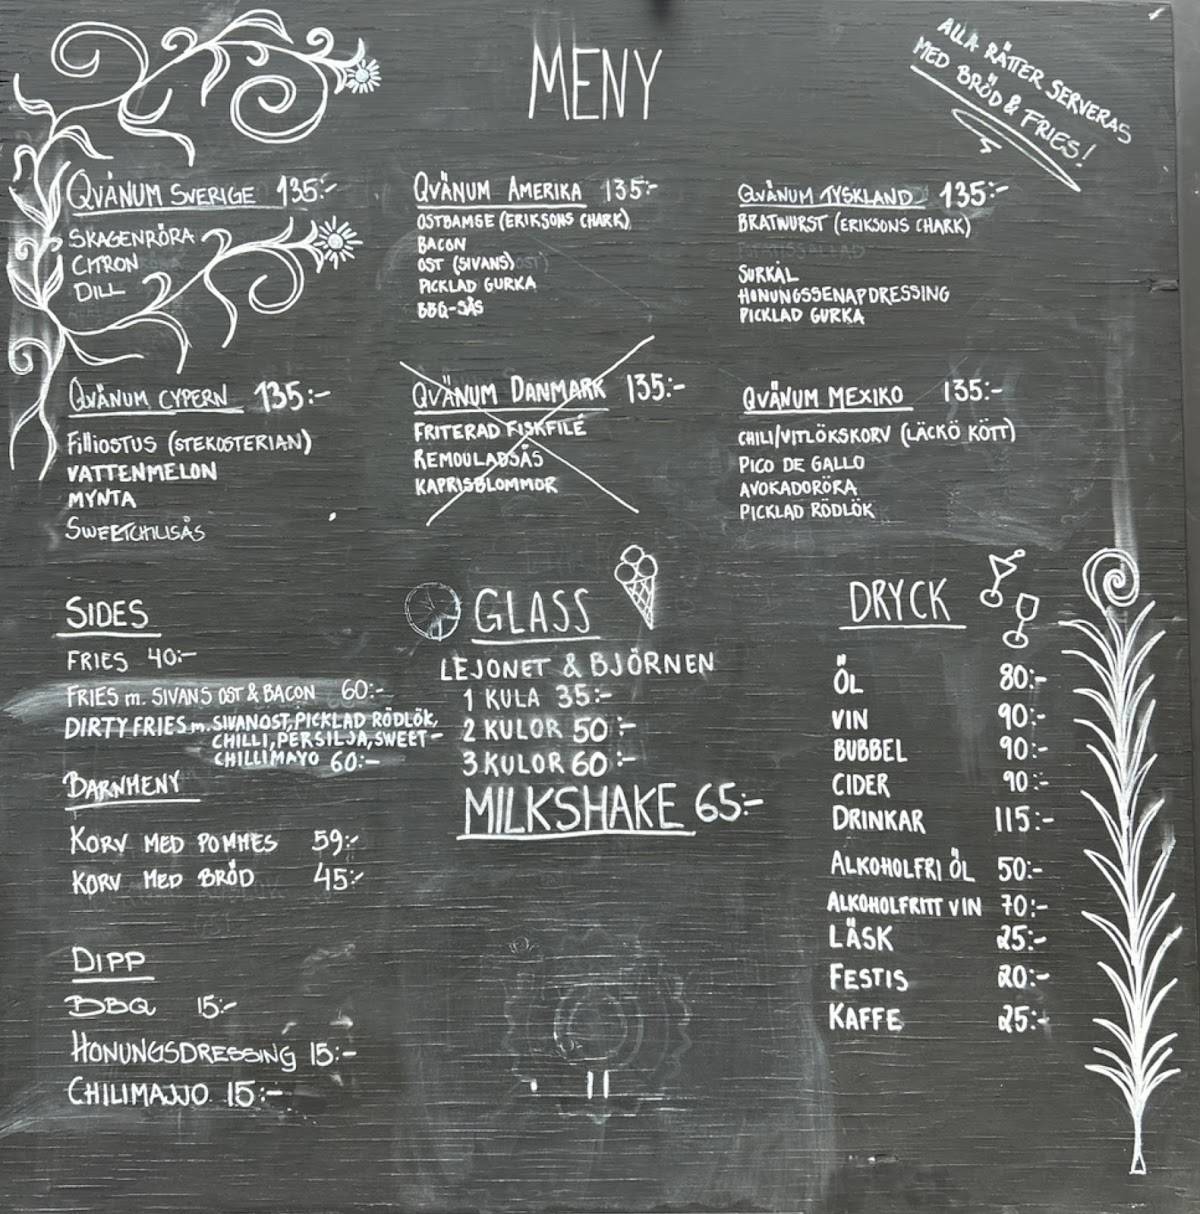 MENY
ALLA RÄTTER SERVERAS
MED BRÖD & FRIES!
QVÄNUM SVERIGE 135:-
SKAGENRÖRA
CITRON
DILL
QVÄNUM AMERIKA 135:-
OSTBAMSE (ERIKSONS CHARK)
BACON
OST (SIVANS)
PICKLAD GURKA
BBQ-SÅS
QVÄNUM TYSKLAND 135:-
BRATWURST (ERIKSONS CHARK)
SURKÅL
HONUNGSSENAPDRESSING
PICKLAD GURKA
QVÄNUM CYPERN 135:-
Filliostus (STEKOSTERIAN)
VATTENMELON
MYNTA
SWEETCHILISÅS
QVÄNUM DANMARK 135:-
FRITERAD FISKFILÉ
REMOULADSÅS
KAPRISBLOMMOR
QVÄNUM MEXIKO 135:-
CHILI/VITLÖKSKORV (LÄCKÖ KÖTT)
PICO DE GALLO
AVOKADORÖRA
PICKLAD RÖDLÖK
SIDES
FRIES 40:-
FRIES m. SIVANS OST & BACON 60:-
DIRTY FRIES m. SIVANOST, PICKLAD RÖDLÖK,
CHILLI, PERSILJA, SWEET-
CHILLIMAYO 60:-
BARNMENY
KORV MED POMMES 59:-
KORV MED BRÖD 45:-
DIPP
BBQ 15:-
HONUNGSDRESSING 15:-
CHILIMAJJO 15:-
GLASS
LEJONET & BJÖRNEN
1 KULA 35:-
2 KULOR 50:-
3 KULOR 60:-
MILKSHAKE 65:-
DRYCK
ÖL 80:-
VIN 90:-
BUBBEL 90:-
CIDER 90:-
DRINKAR 115:-
ALKOHOLFRI ÖL 50:-
ALKOHOLFRITT VIN 70:-
LÄSK 25:-
FESTIS 20:-
KAFFE 25:-